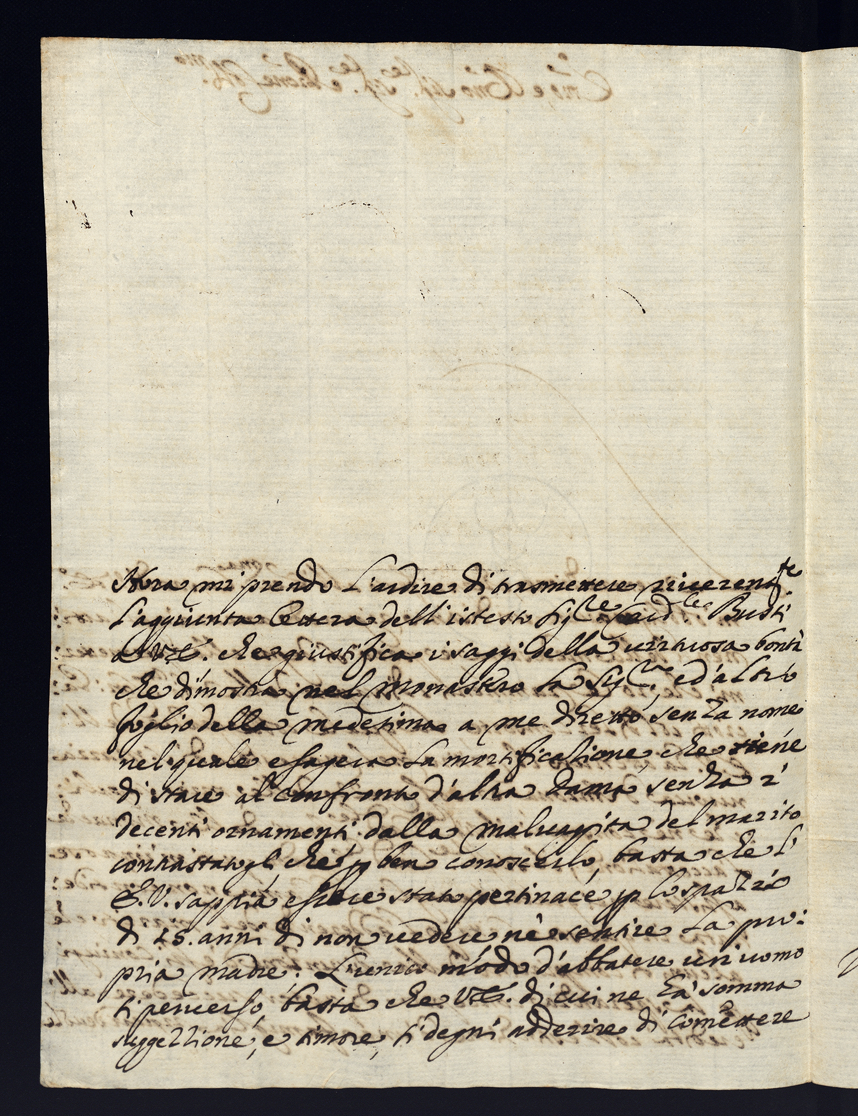 Hora mi prendo l'ardire di trasmettere riverente
l'aggiunta lettera dell'istesso Sig.re Busti
a V.E. che giustifica i saggi della virtuosa bontà
che dimostra nel Monastero la Sig.ra ed altro
foglio della medesima a me diretto senza nome
nel quale esagera la mortificazione, che tiene
di stare al confronto d'altra Dama, senza i
decenti ornamenti dalla malvagità del marito
contrastatogli, che p ben conoscerlo, basta che l'
E.V. sappia essere stato pertinace p lo spazio
di 18. anni di non vedere nè sentire la pro:
pria madre. L'unico modo d'abbatere un uomo
sì perverso, basta che V.E. di cui ne hà somma
suggezzione, e timore, si degni adderire di comettere